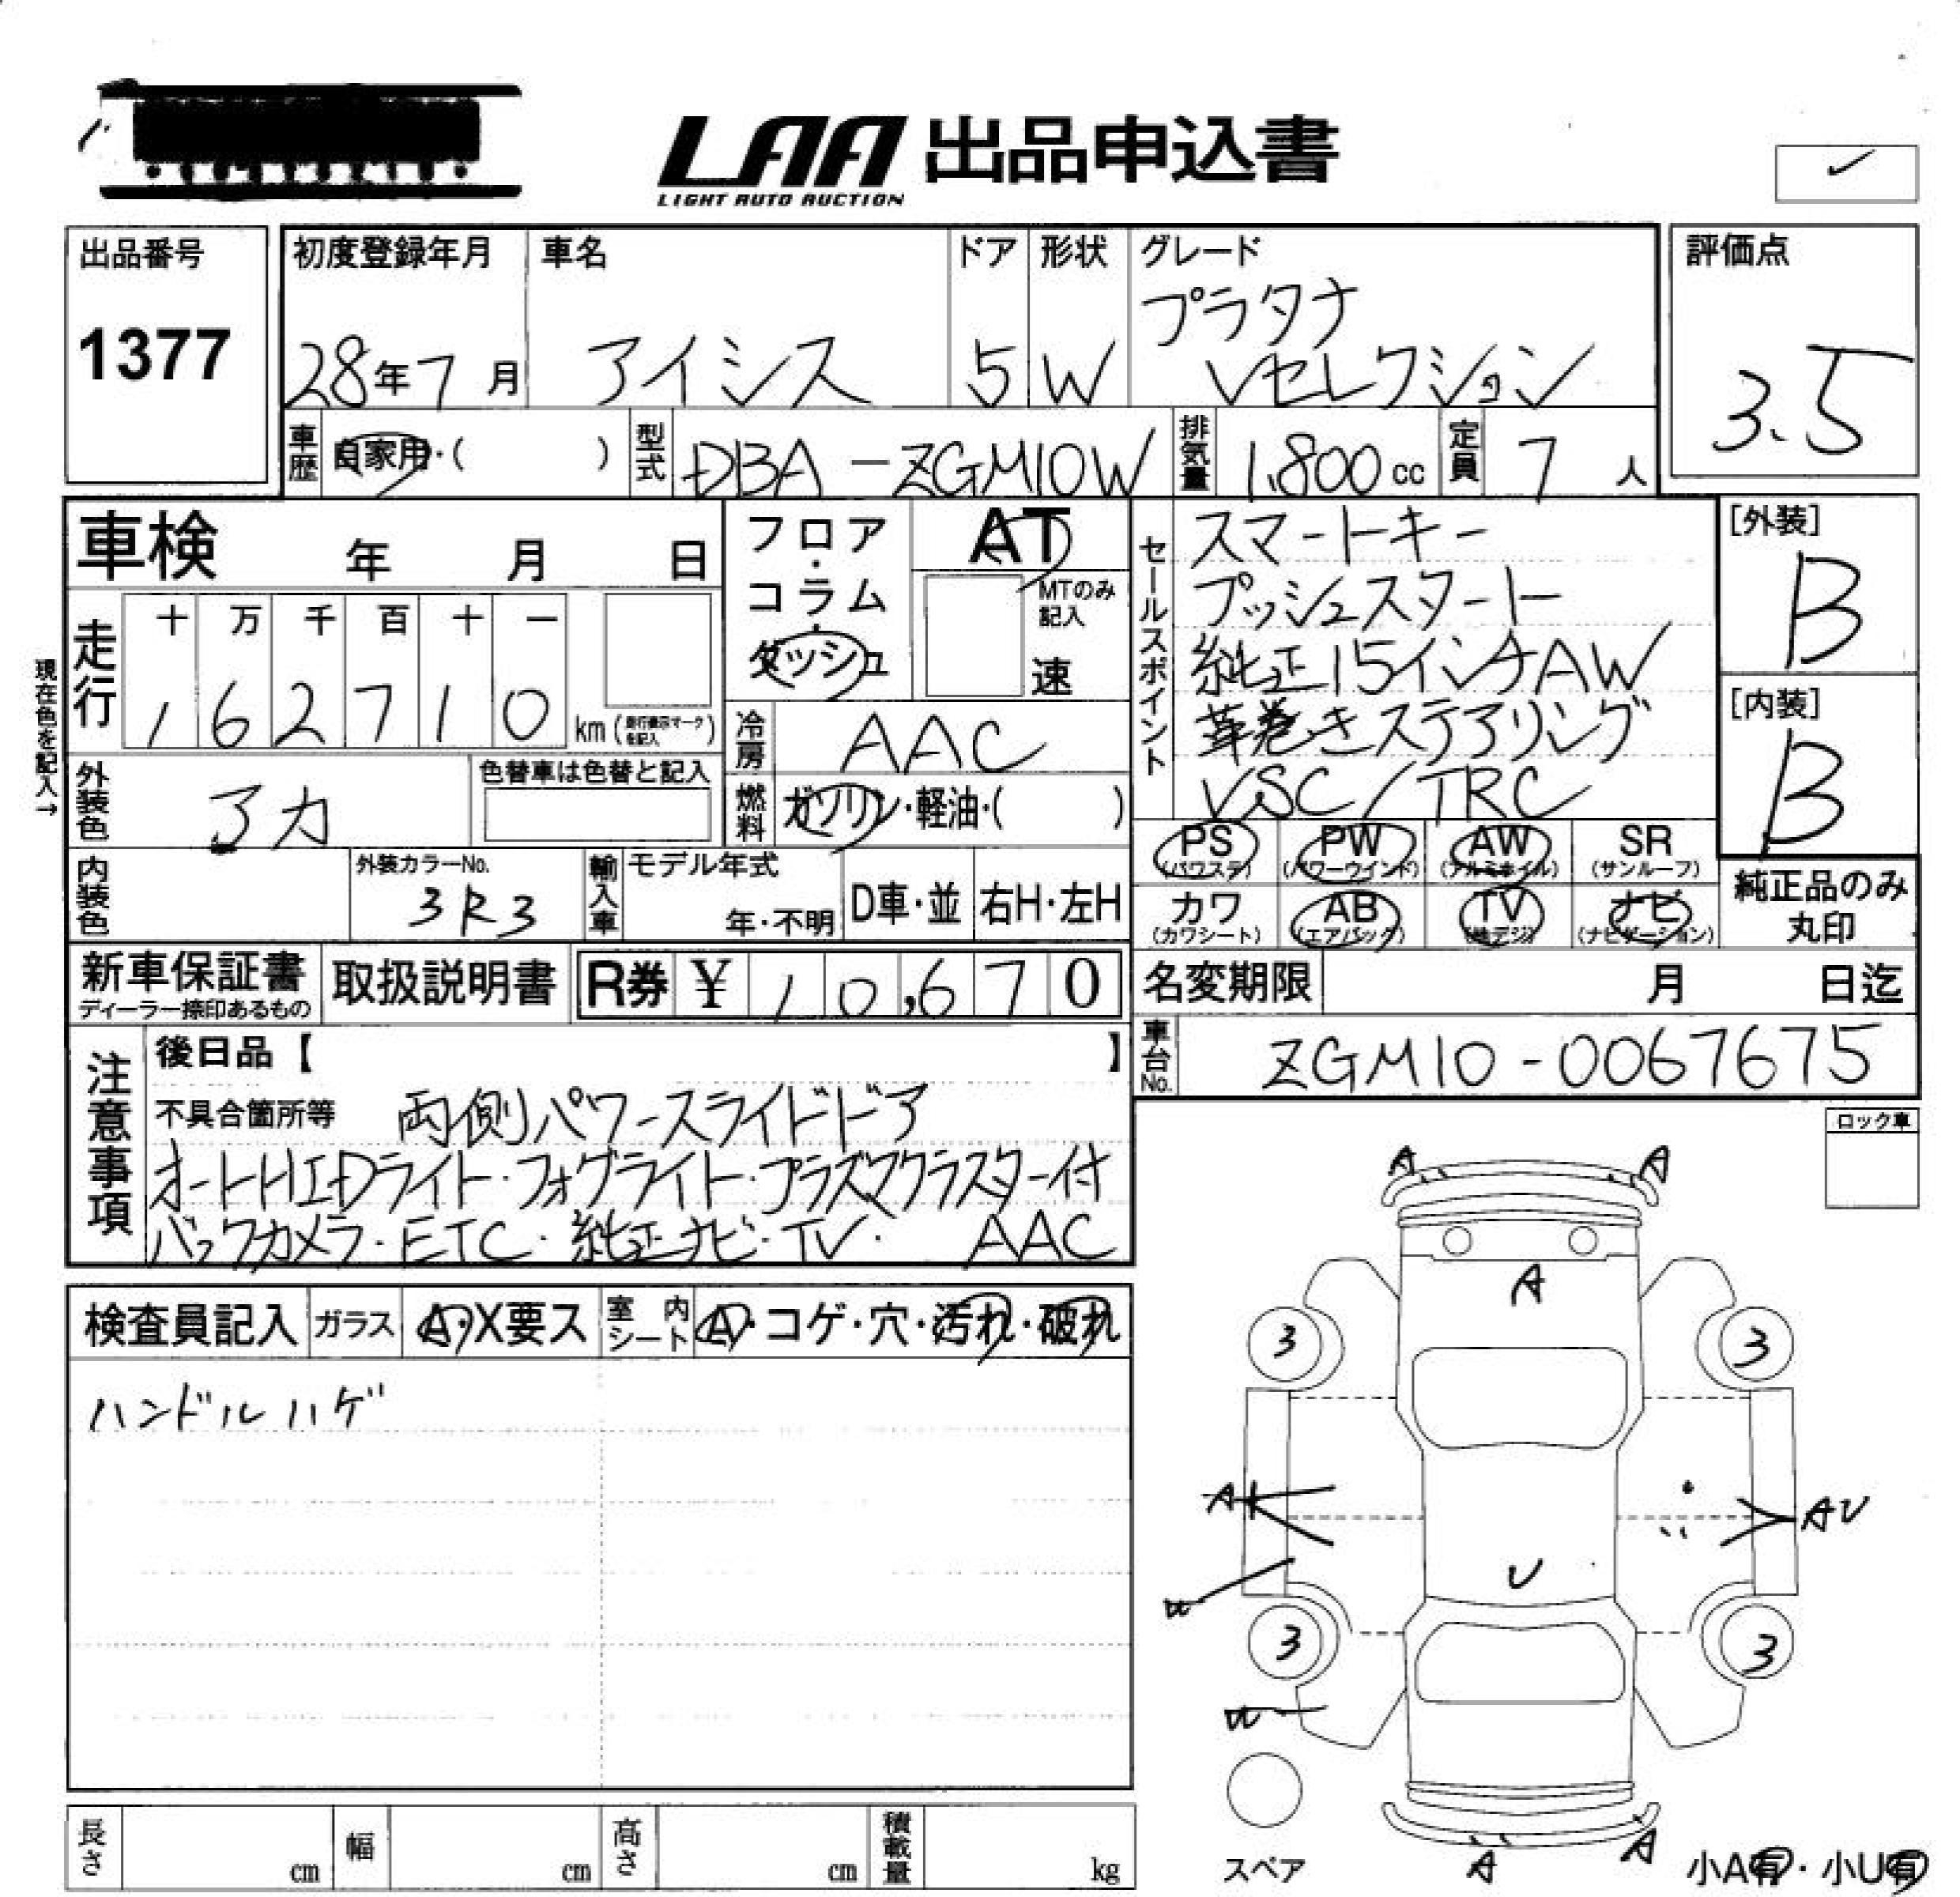 LAA 出品申込書
LIGHT AUTO AUCTION
出品番号
1377
初度登録年月
28年7月
車名
アイシス
ドア
5
形状
W
グレード
プラタナ
Vセレクション
評価点
3.5
車歴
自家用・( )
型式
DBA-ZGM10W
排気量
1,800 cc
定員
7人
車検 年 月 日
フロア・コラム・ダッシュ
AT
MTのみ記入
速
現在色を記入→
走行
十 万 千 百 十 一
1 6 2 7 1 0 km (走行表示マークを記入)
冷房
AAC
燃料
ガソリン・軽油・( )
外装色
アカ
色替車は色替と記入
内装色
外装カラーNo.
3R3
輸入車
モデル年式
年・不明
D車・並
右H・左H
セールスポイント
スマートキー
プッシュスタート
純正15インチAW
革巻きステアリング
VSC/TRC
[外装]
B
[内装]
B
PS (パワステ)
PW (パワーウインド)
AW (アルミホイル)
SR (サンルーフ)
カワ (カワシート)
AB (エアバック)
TV (地デジ)
ナビ (ナビゲーション)
純正品のみ丸印
新車保証書
ディーラー捺印あるもの
取扱説明書
R券 ¥ 10,670
名変期限 月 日迄
車台No.
ZGM10-0067675
注意事項
後日品【 】
不具合箇所等 両側パワースライドドア
オートHIDライト・フォグライト・プラズマクラスター付
バックカメラ・ETC・純正ナビ・TV・ AAC
ロック車
検査員記入
ガラス
A・X要ス
室内シート
A・コゲ・穴・汚れ・破れ
ハンドルハゲ
A A
A
3 3
A AU
U
U
3 3
U
A A
スペア
小A有・小U有
長さ cm
幅 cm
高さ cm
積載量 kg